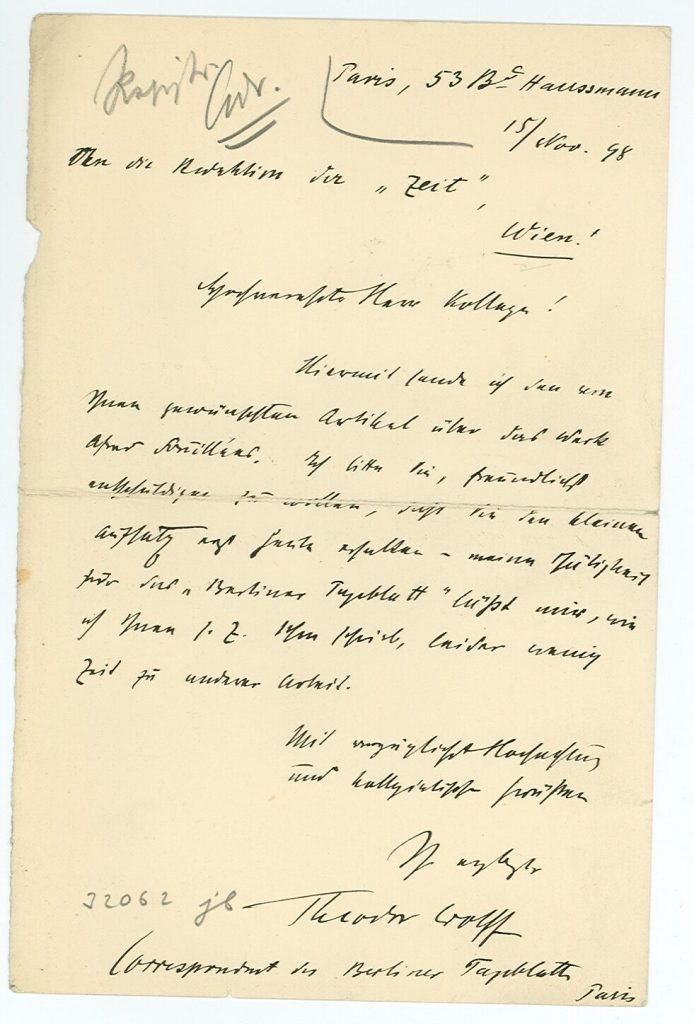 Paris, 53 Bd Haussmann
15/Nov. 98
An die Redaktion der „Zeit",
Wien!
Hochverehrter Herr Kollege!
Hiermit sende ich den von
Ihnen gewünschten Artikel über das Werk
Alfred Fouillées. Ich bitte Sie, freundlichst
entschuldigen zu wollen, daß Sie den kleinen
Aufsatz erst heute erhalten – meine Thätigkeit
für das „Berliner Tageblatt" läßt mir, wie
ich Ihnen s. Z. schon schrieb, leider wenig
Zeit zu anderer Arbeit.
Mit vorzüglichster Hochachtung
und kollegialischen Grüßen
Ihr ergebenster
32062 jb
Theodor Wolff
Correspondent des Berliner Tageblatts
Paris